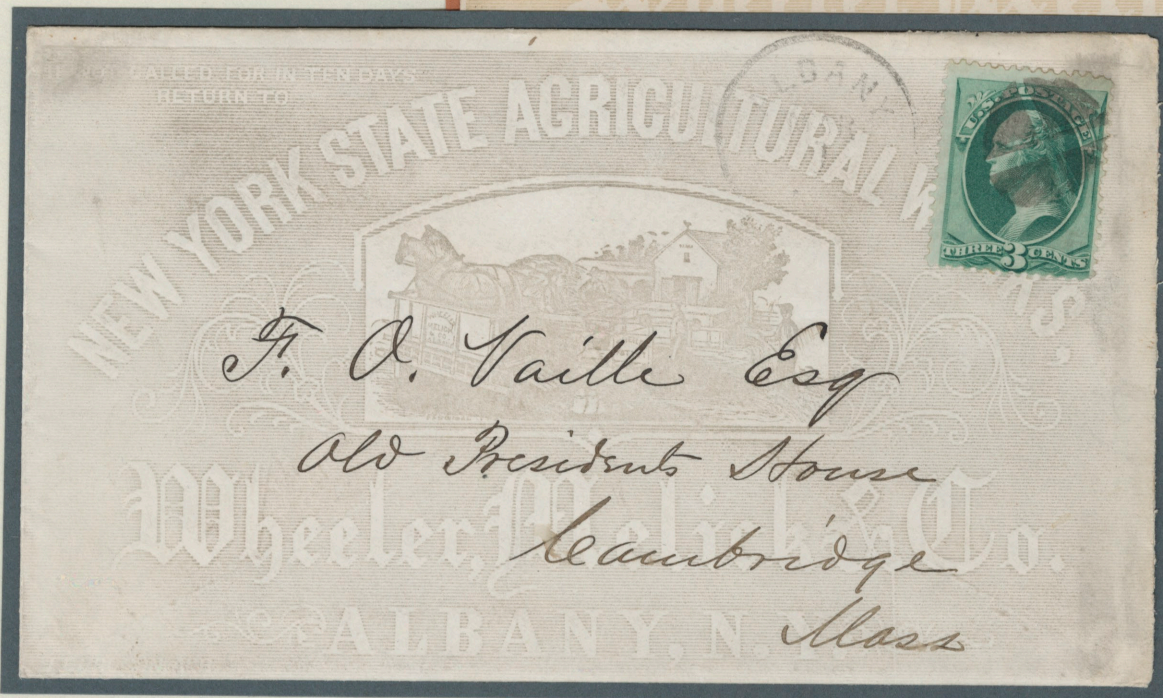 CALLED FOR IN TEN DAYS
RETURN TO
NEW YORK STATE AGRICULTURAL WORKS.
ALBANY
U.S. POSTAGE
THREE 3 CENTS
F. O. Vaille Esq
Old Presidents House
Cambridge
Mass
Wheeler, Melick & Co.
ALBANY, N.Y.